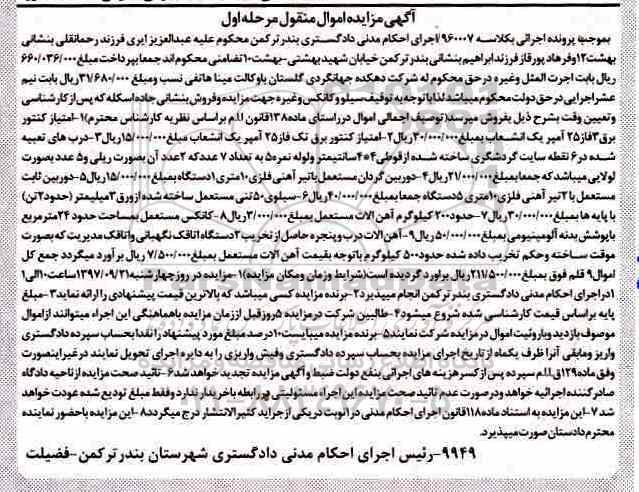 آگهی مزایده اموال منقول مرحله اول
بموجب پرونده اجرائی بکلاسه ۹۶۰۰۰۷ اجرای احکام مدنی دادگستری بندر ترکمن محکوم علیه عبدالعزیز ایری فرزند رحمانقلی بنشانی
بهشت۱۲وفرهاد پورقاز فرزند ابراهیم بنشانی بندر ترکمن خیابان شهید بهشتی-بهشت۱۰تضامنی محکوم اند جمعا بپرداخت مبلغ۶۶۰/۰۳۶/۰۰۰
ریال بابت اجرت المثل وغیره در حق محکوم له شرکت دهکده جهانگردی گلستان باوکالت مینا هاتفی نسب ومبلغ ۳۷/۶۸۰/۰۰۰ ریال بابت نیم
عشر اجرایی در حق دولت محکوم میباشند لذا باتوجه به توقیف سیلو وکانکس وغیره جهت مزایده وفروش بنشانی جاده اسکله که پس از کارشناسی
وتعیین وقت بشرح ذیل بفروش میرسد(توصیف اجمالی اموال در راستای ماده۱۳۸قانون ا.ا.م براساس نظریه کارشناس محترم)۱-امتیاز کنتور
برق۳فاز۲۵ آمپر یک انشعاب بمبلغ۳۰/۰۰۰/۰۰۰ریال۲-امتیاز کنتور برق تک فاز۲۵ آمپر یک انشعاب مبلغ۱۵/۰۰۰/۰۰۰ریال۳-درب های تعبیه
شده در۶ نقطه سایت گردشگری ساخته شده ازقوطی۴*۴سانتیمتر ولوله نمره۵ به تعداد ۷ عددکه ۲عدد آن بصورت ریلی و۵ عدد بصورت
لولایی میباشد که جمعا بمبلغ۲۱/۰۰۰/۰۰۰ریال۴-دوربین گردان مستعمل باتیر آهنی فلزی۱۰متری۱دستگاه بمبلغ۱۵/۰۰۰/۰۰۰ریال۵-دوربین ثابت
مستعمل با۲تیر آهنی فلزی۱۰متری ۵دستگاه جمعا بمبلغ۴۰/۰۰۰/۰۰۰ریال۶-سیلوی۵۰تنی مستعمل ساخته شده ازورق۳میلیمتر (حدود۲تن)
با پایه ها بمبلغ۳۰/۰۰۰/۰۰۰ریال۷-حدود۲۰۰ کیلوگرم آهن الات مستعمل بمبلغ۳/۰۰۰/۰۰۰ریال۸-کانکس مستعمل بمساحت حدود ۲۴مترمربع
باپوشش بدنه آلومینیومی بمبلغ۵۰/۰۰۰/۰۰۰ریال۹-آهن الات درب وپنجره حاصل از تخریب ۲دستگاه اتاقک نگهبانی واتاقک مدیریت که بصورت
موقت ساخته وحکم تخریب داده شده حدود۵۰۰ کیلوگرم باتوجه بقیمت آهن آلات مستعمل بمبلغ۷/۵۰۰/۰۰۰ ریال برآورد میگردد جمع کل
اموال۹ قلم فوق بمبلغ۲۱۱/۵۰۰/۰۰۰ریال براورد گردیده است(شرایط وزمان ومکان مزایده)۱-مزایده در روز چهارشنبه۱۳۹۷/۰۹/۲۱ساعت۱۰الی۱
۱دراجرای احکام مدنی دادگستری بندر ترکمن انجام میپذیرد۲-برنده مزایده کسی میباشد که بالاترین قیمت پیشنهادی را ارائه نماید۳-مبلغ
پایه براساس قیمت کارشناسی شده شروع میشود۴-طالبین شرکت درمزایده ۵روز قبل از زمان مزایده باهماهنگی این اجراء میتوانند ازاموال
موصوف بازدید وباروئیت اموال درمزایده شرکت نمایند۵-برنده مزایده میبایست۱۰درصد مبلغ مورد پیشنهاد رانقدا بحساب سپرده دادگستری
واریز ومابقی آنرا ظرف یکماه از تاریخ اجرای مزایده بحساب سپرده دادگستری وفیش واریزی را به دایره اجرای تحویل نمایند درغیراینصورت
وفق ماده۱۲۹ق.ا.ا.م سپرده پس از کسر هزینه های اجرائی بنفع دولت ضبط وآگهی مزایده تجدید خواهد شد۶-تائید صحت مزایده ازناحیه دادگاه
صادرکننده اجرائیه خواهد ودرصورت عدم تائید صحت مزایده این اجراء مسئولیتی در رابطه باخریدار ندارد وفقط مبلغ تودیع شده عودت خواهد
شد ۷-این مزایده به استناد ماده۱۱۸قانون اجرای احکام مدنی در۱نوبت دریکی ازجراید کثیرالانتشار درج میگردد۸-این مزایده باحضور نماینده
محترم دادستان صورت میپذیرد.
۹۹۴۹-رئیس اجرای احکام مدنی دادگستری شهرستان بندر ترکمن-فضیلت